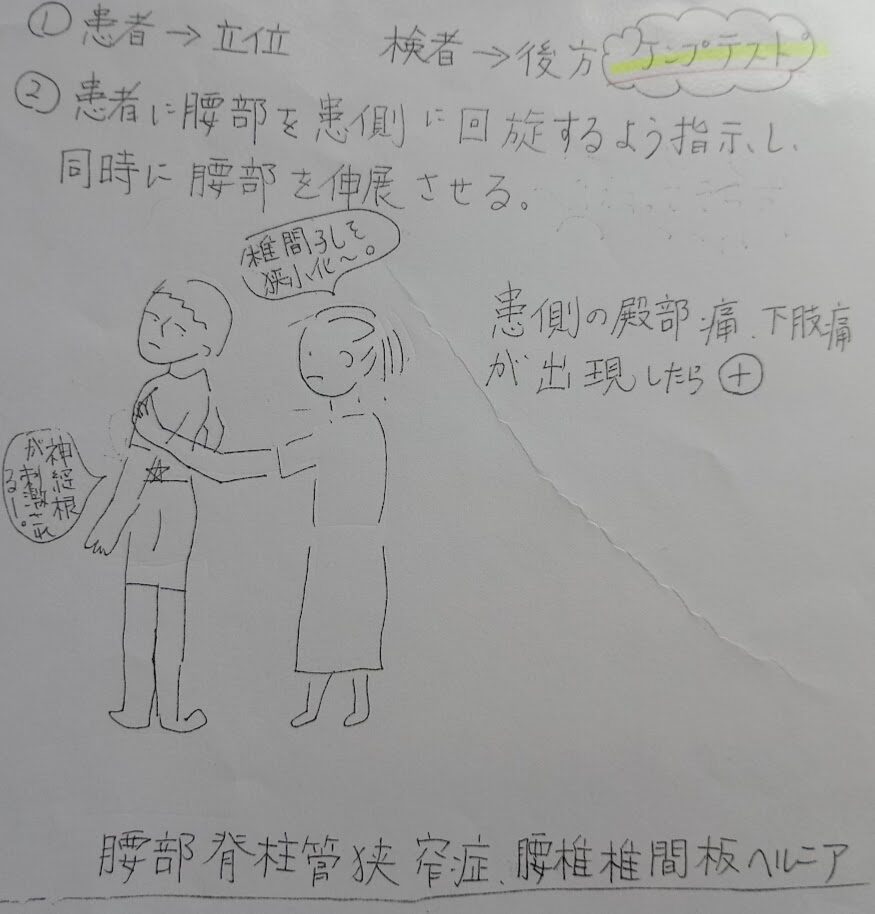 ①患者→立位 検者→後方 ケンプテスト
②患者に腰部を患側に回旋するよう指示し、
同時に腰部を伸展させる。
椎間孔を
狭小化〜。
患側の殿部痛、下肢痛
が出現したら⊕
神経根
が刺激され
るー。
腰部脊柱管狭窄症、腰椎椎間板ヘルニア